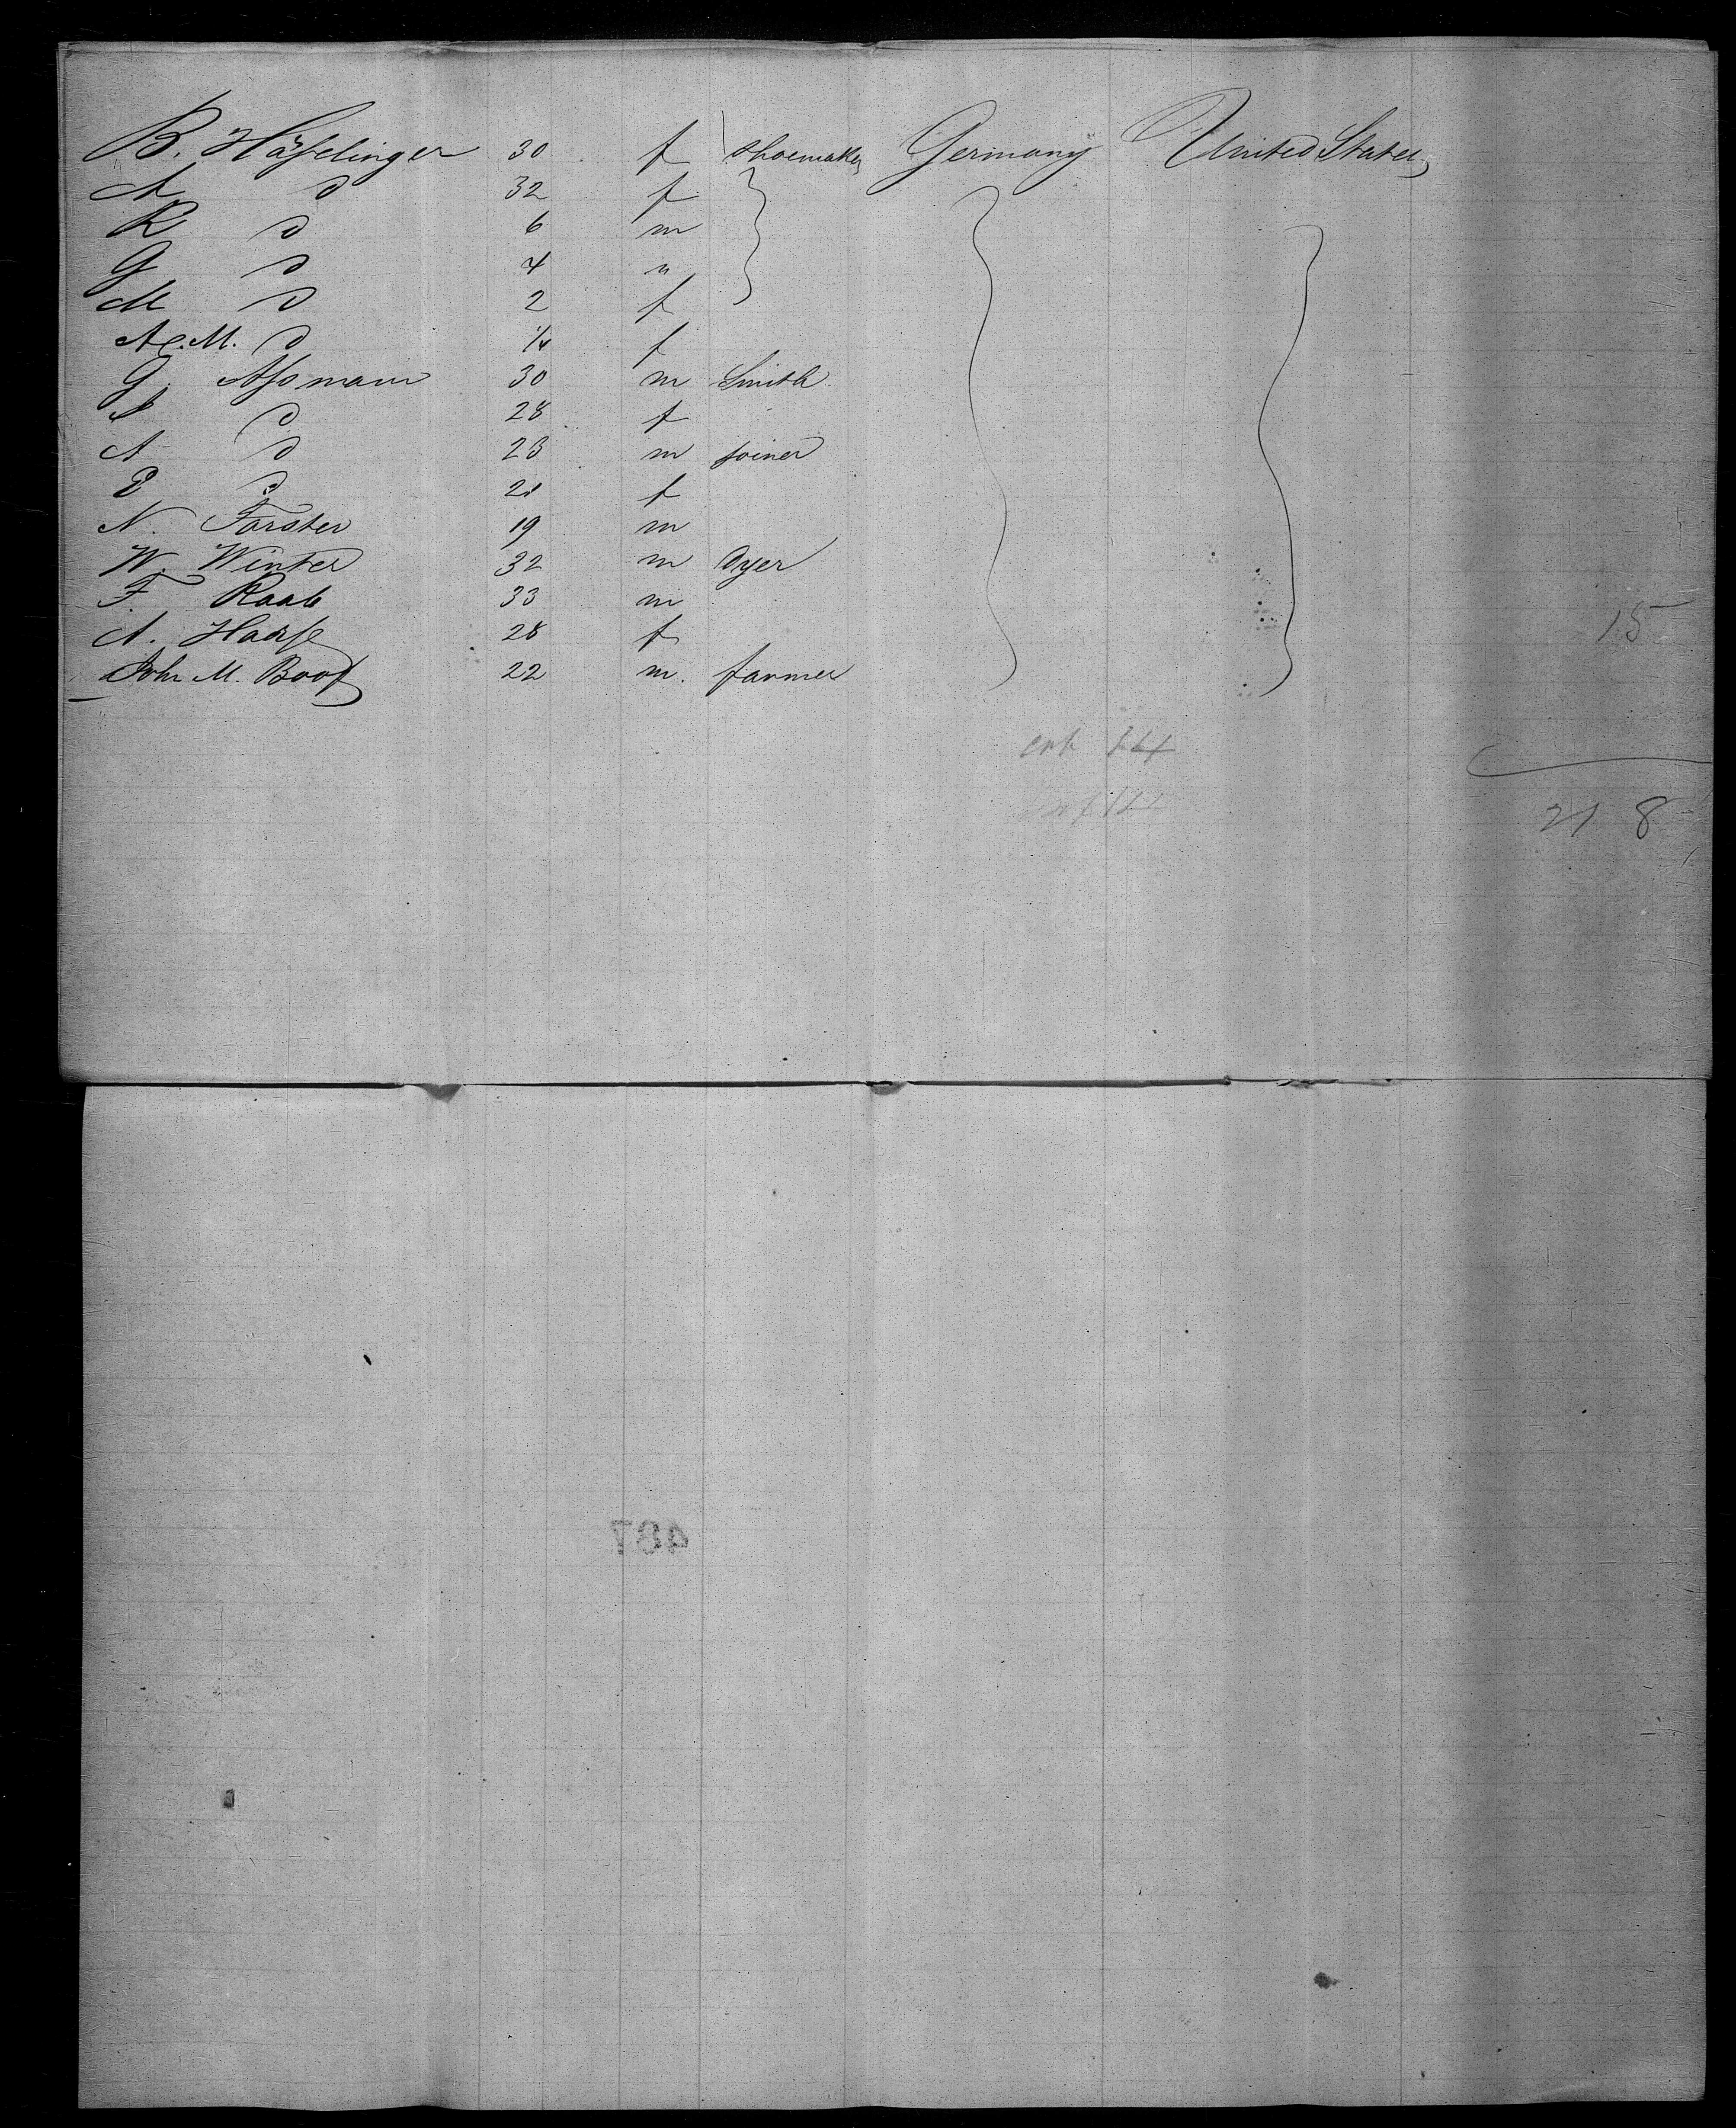 B. Hässelinger 30 f shoemaker Germany United States
A d 32 f
R d 6 m
G d 4 m
M d 2 f
A. M. d 1/4 f
G. Assmann 30 m Smith
d 28 f
A d 23 m joiner
E d 21 f
N. Forster 19 m
W. Winter 32 m dyer
F. Raab 33 m
A. Haase 28 f
15
John M. Boos 22 m. farmer
218
487